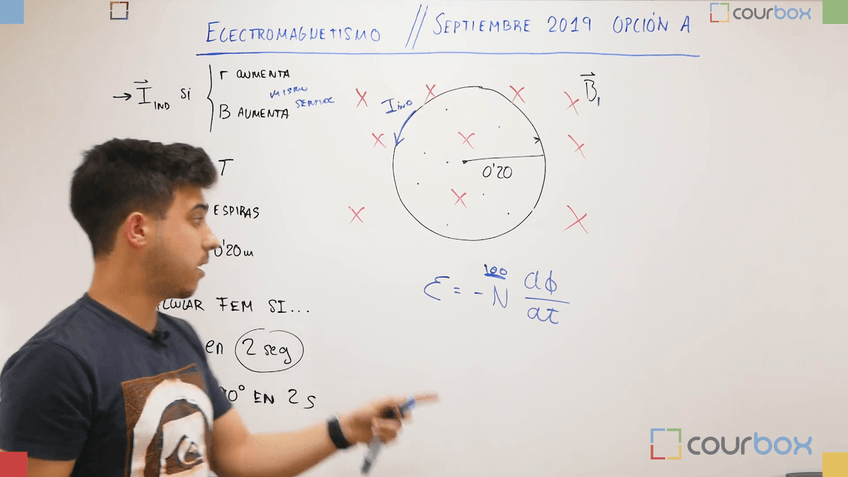 ELECTROMAGNETISMO // SEPTIEMBRE 2019 OPCIÓN A
courbox
→ I IND SI
r AUMENTA
B AUMENTA
MISMO
SENTIDO
I IND
B₁
0'20
T
ESPIRAS
0'20m
FEM SI...
en 2 seg
0° EN 2 s
100
ℰ = -N dϕ/dt
courbox